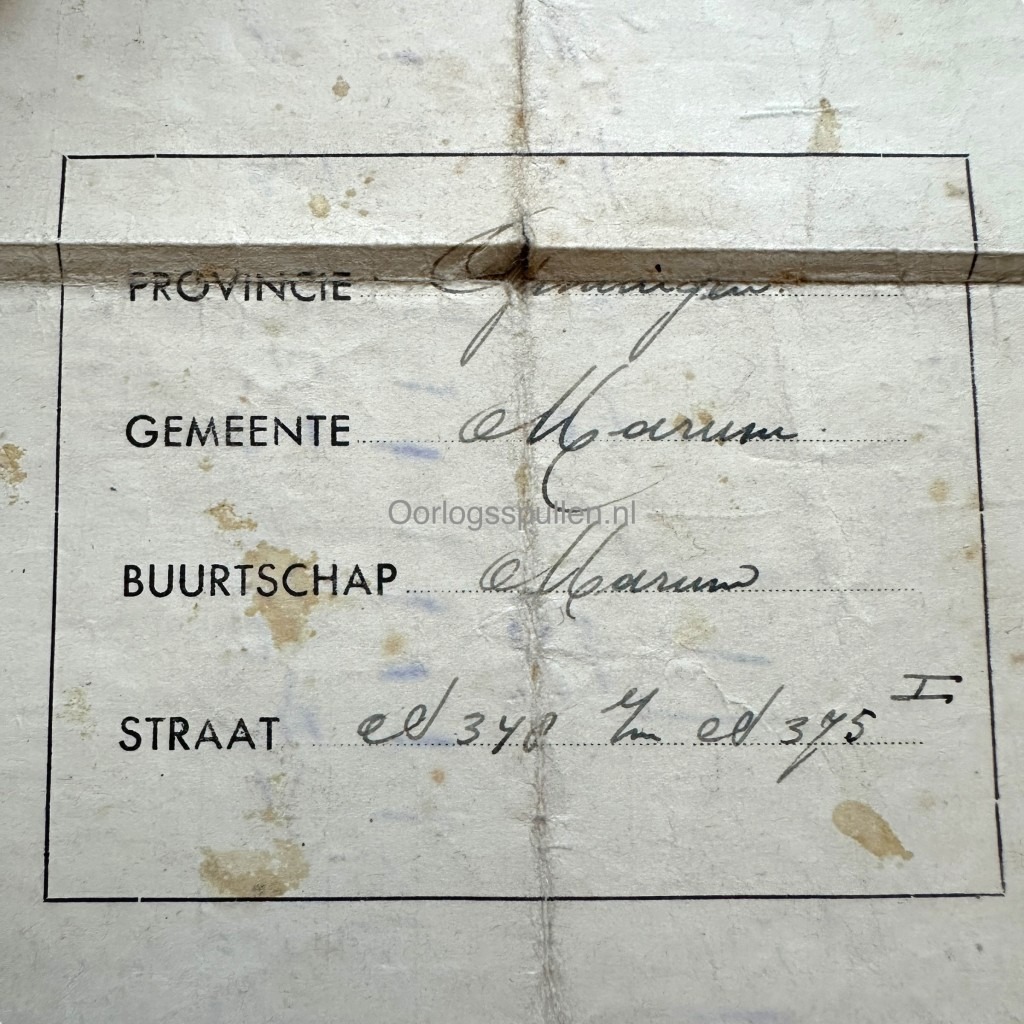 PROVINCIE Groningen.
GEMEENTE Marum
Oorlogsspullen.nl
BUURTSCHAP Marum
STRAAT 348 t/m 375 I